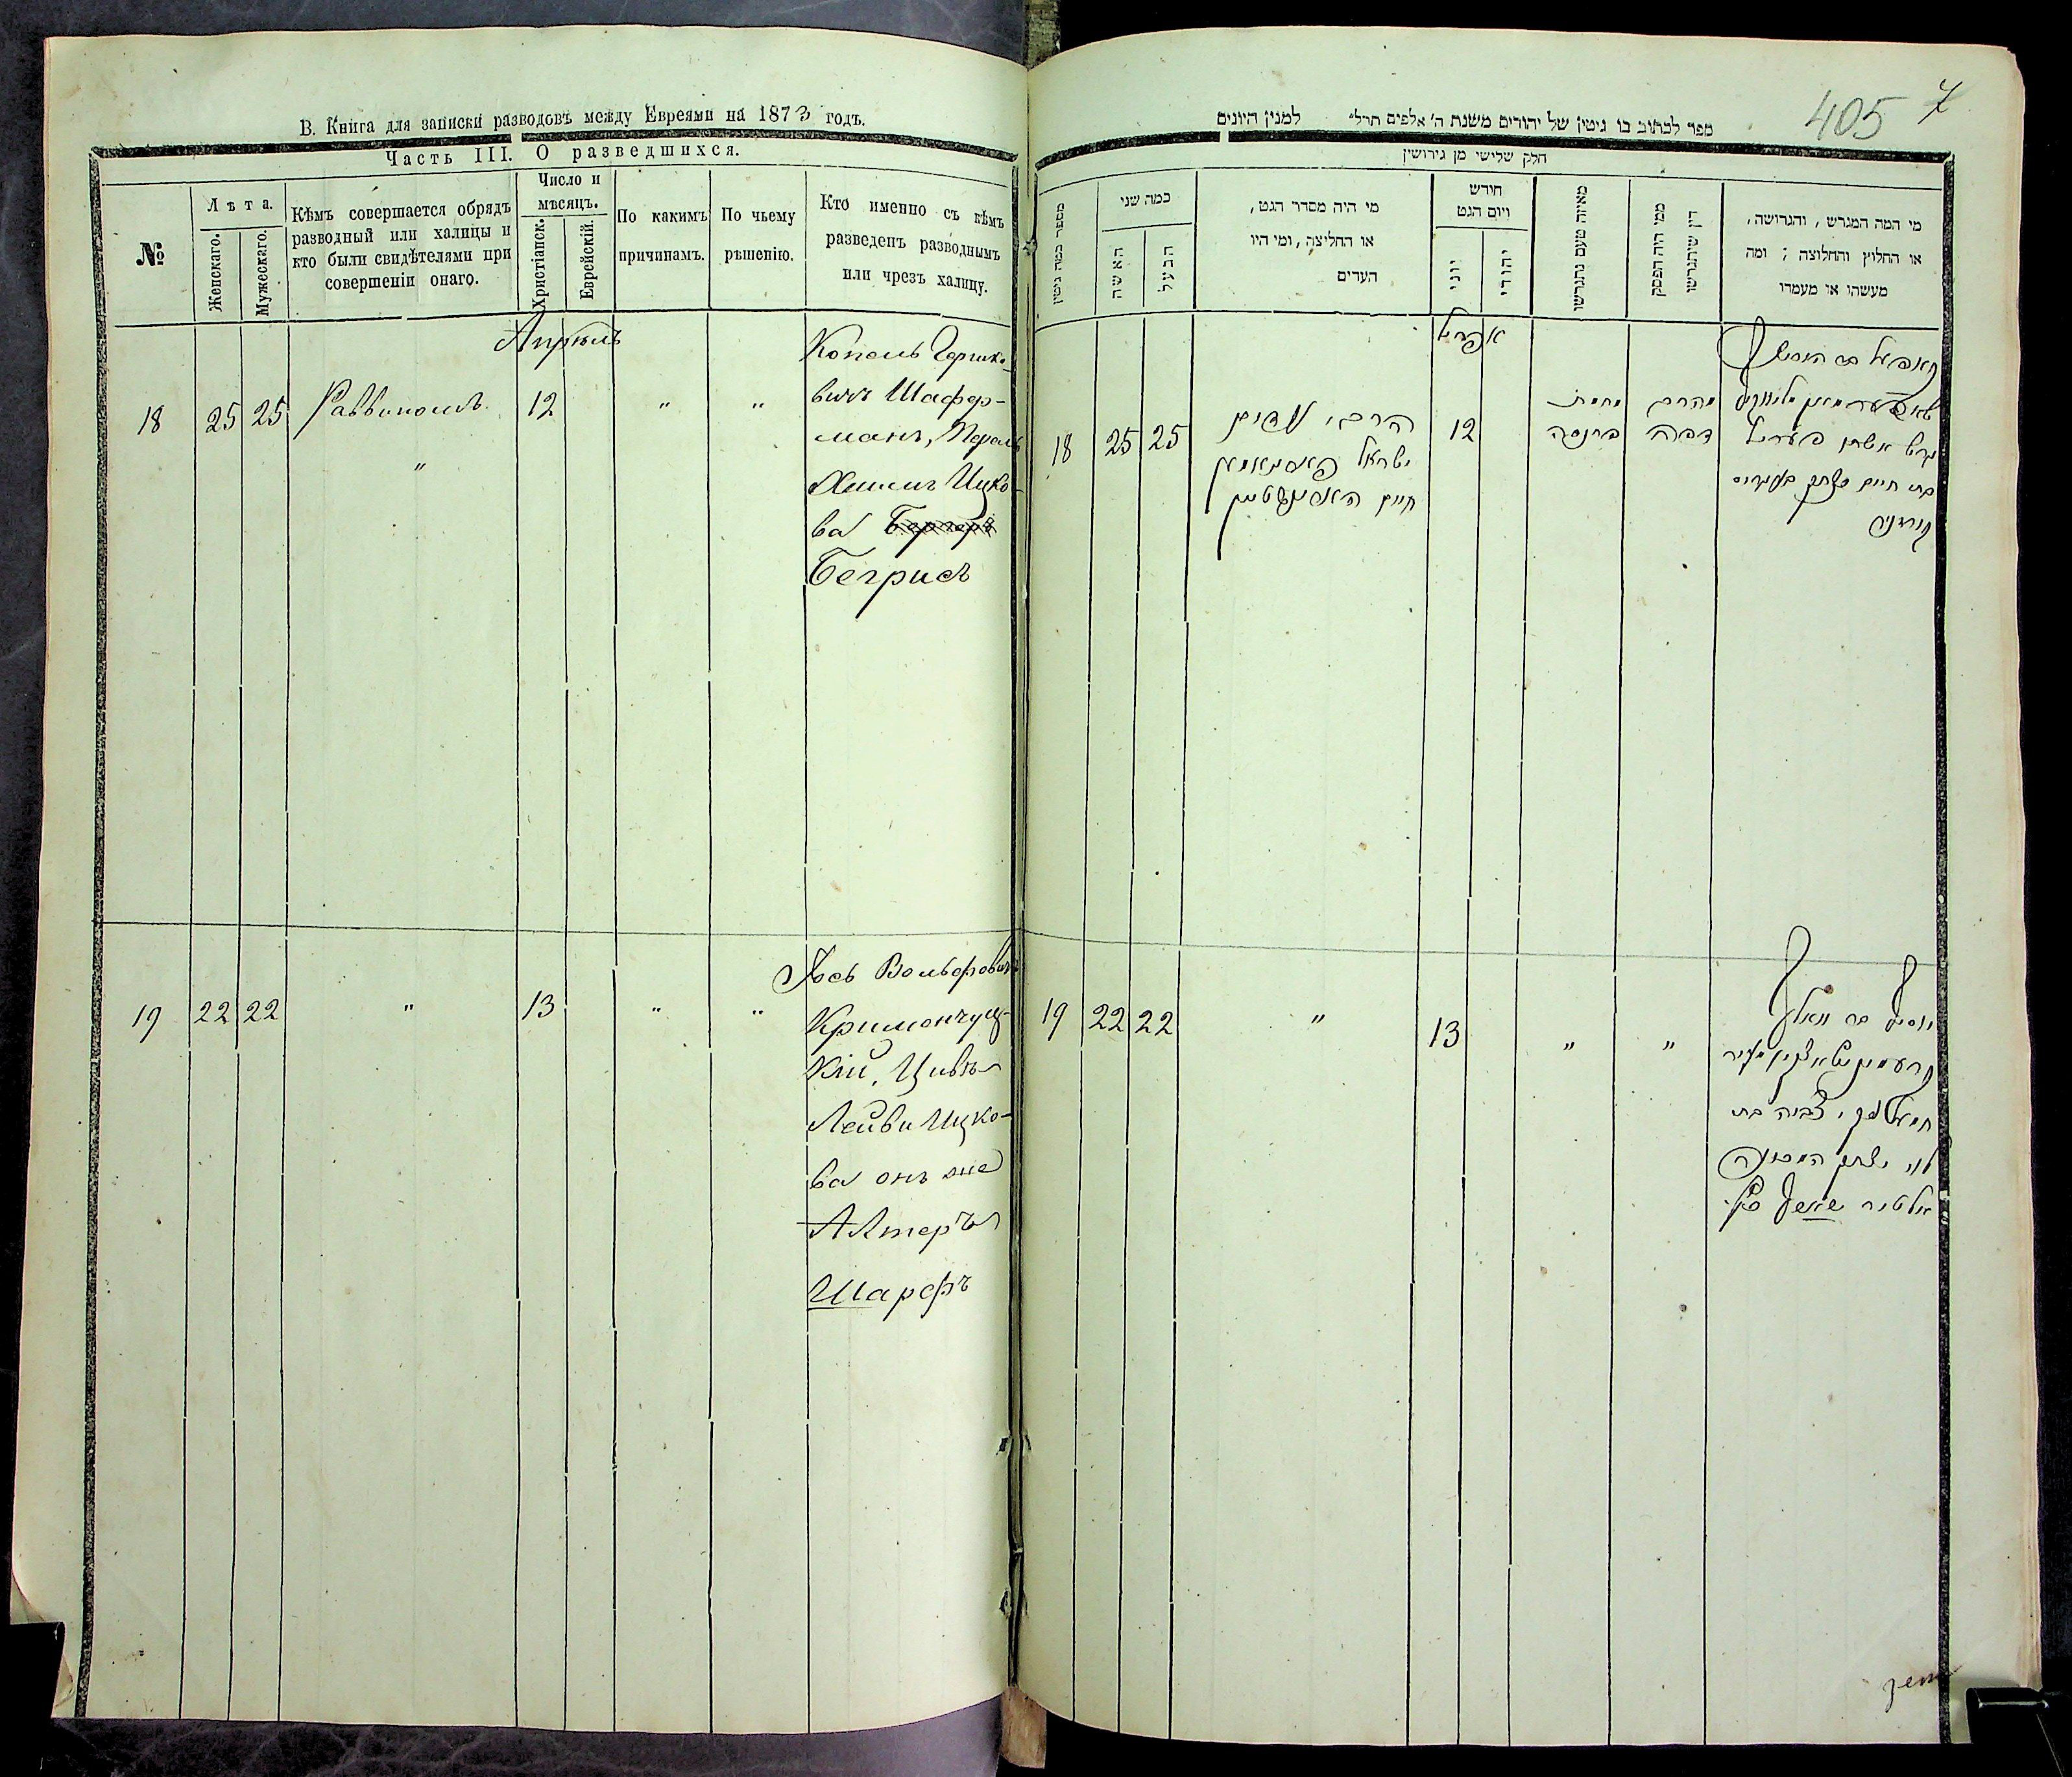 В. Книга для записки разводовъ между Евреями на 1873 годъ.
Часть III. О разведшихся.
№
Лѣта.
Женскаго.
Мужескаго.
Кѣмъ совершается обрядъ
разводный или халицы и
кто были свидѣтелями при
совершеніи онаго.
Число и
мѣсяцъ.
Христіанск.
Еврейскій.
По какимъ
причинамъ.
По чьему
рѣшенію.
Кто именно съ кѣмъ
разведенъ разводнымъ
или чрезъ халицу.
Апрѣль
18 25 25 Раввиномъ 12 " "
"
Копель Гершко-
вичъ Шафер-
манъ,
Ицко-
ва
Бегрисъ
19 22 22 " 13 " "
Іось Вольфовичъ
Кримончуц-
кій, Цивья
Лейви Ицко-
ва онъ же
Алтеръ
Шарфъ
405
ספר לכתוב בו גיטין של יהודים משנת ה' אלפים תרל" למנין היונים
חלק שלישי מן גירושין
מספר כמה גיטין
כמה שני
האשה
הבעל
מי היה מסדר הגט,
או החליצה, ומי היו
העדים
חודש
ויום הגט
יוני
יהודי
מאיזה טעם נתגרשו
ממי היה הפסק
דין שיתגרשו
מי המה המגרש, והגרושה,
או החלוץ והחלוצה; ומה
מעשהו או מעמדו
אפריל
18 25 25
הרבי
ישראל
חיים
12
אשתו פערל
בת חיים יצחק
19 22 22 " 13 " "
יוסף בר וואלף
צביה בת
לוי יצחק המכונה
אלטיר שארף